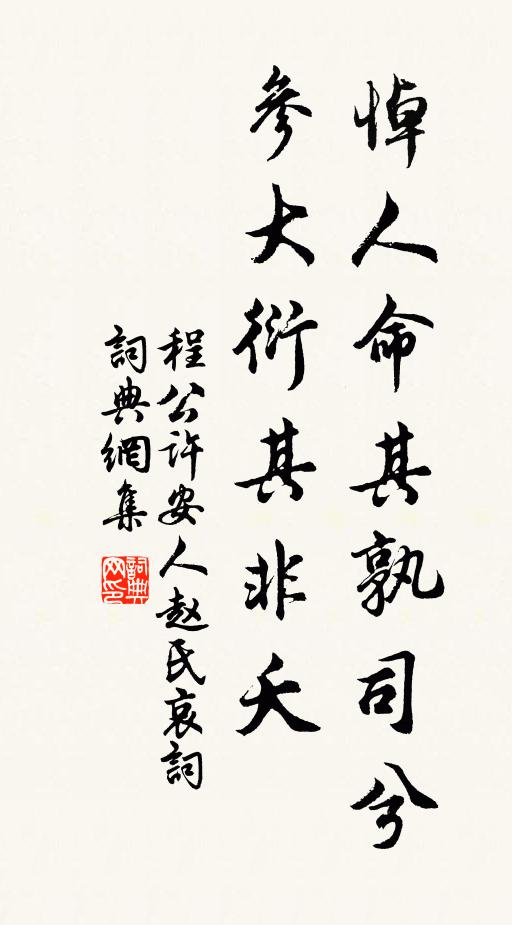 悼人命其孰司兮
參大衍其非夭
程公许安人赵氏哀詞
詞典網集
詞典网印